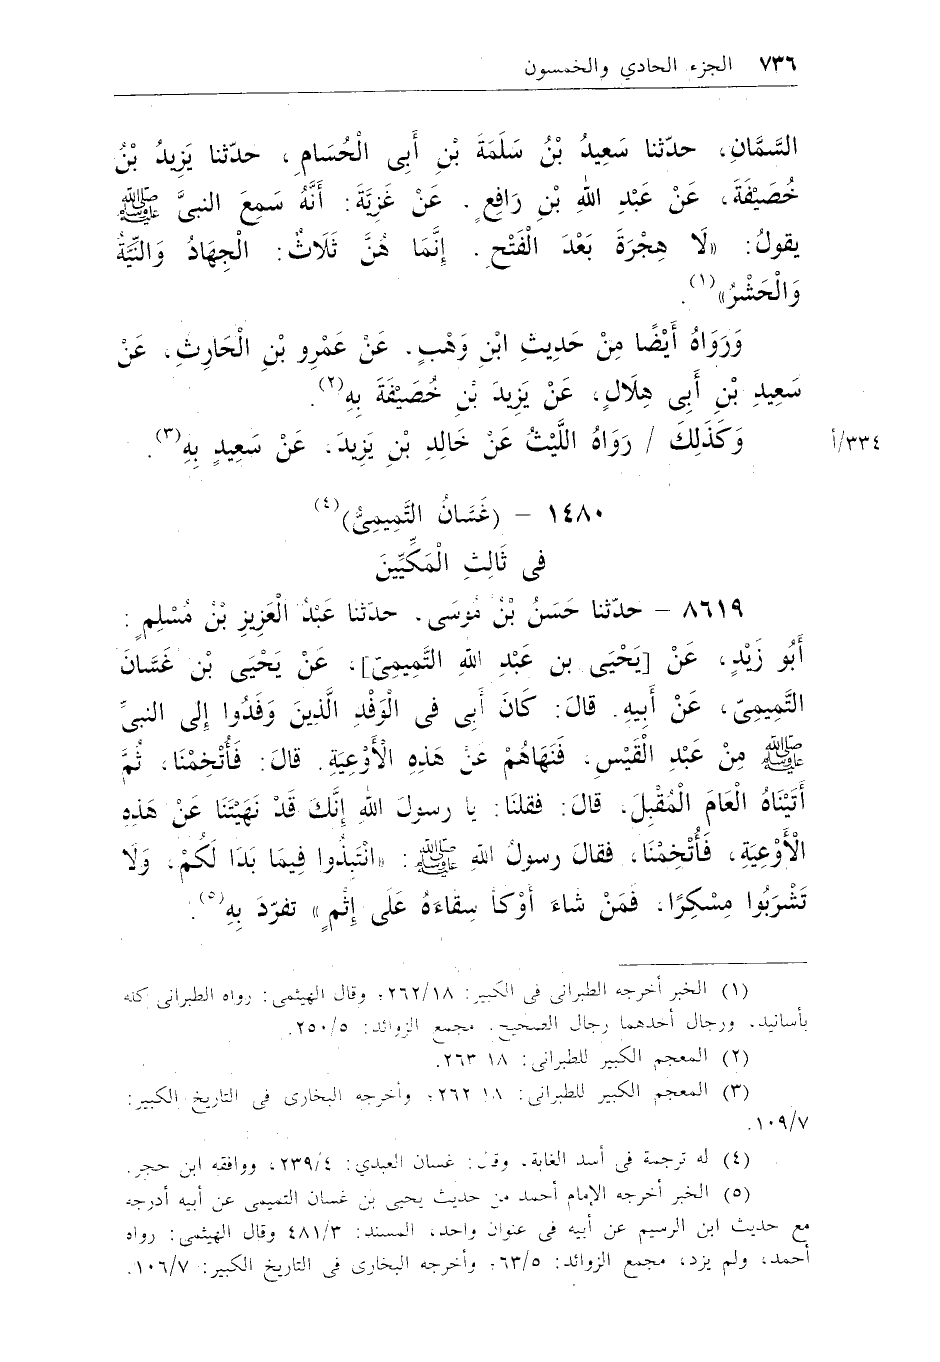 ٧٣٦ الجزء الحادي والخمسون
السَّمَّانِ، حدّثنا سَعِيدُ بْنُ سَلَمَةَ بْنِ أَبِى الْحُسَامِ، حدّثنا يَزِيدُ بْنُ
خُصَيْفَةَ، عَنْ عَبْدِ اللهِ بْنِ رَافِعٍ. عَنْ غَزِيَّةَ: أَنَّهُ سَمِعَ النبىَّ ﷺ
يقولُ: «لَا هِجْرَةَ بَعْدَ الْفَتْحِ. إِنَّمَا هُنَّ ثَلَاثٌ: الْجِهَادُ وَالنِّيَّةُ
وَالْحَشْرُ»(١).
وَرَوَاهُ أَيْضًا مِنْ حَدِيثِ ابْنِ وَهْبٍ. عَنْ عَمْرِو بْنِ الْحَارِثِ، عَنْ
سَعِيدِ بْنِ أَبِى هِلَالٍ، عَنْ يَزِيدَ بْنِ خُصَيْفَةَ بِهِ(٢).
وَكَذَلِكَ / رَوَاهُ اللَّيْثُ عَنْ خَالِدِ بْنِ يَزِيدَ، عَنْ سَعِيدٍ بِهِ(٣). ٣٣٤/أ
١٤٨٠ - (غَسَّانُ التَّمِيمِىُّ)(٤)
فِى ثَالِثِ الْمَكِّيِّينَ
٨٦١٩ - حدّثنا حَسَنُ بْنُ مُوسَى. حدّثنا عَبْدُ الْعَزِيزِ بْنُ مُسْلِمٍ:
أَبُو زَيْدٍ، عَنْ [يَحْيَى بن عَبْدِ اللهِ التَّمِيمِىّ]، عَنْ يَحْيَى بْنِ غَسَّانَ
التَّمِيمِىّ، عَنْ أَبِيهِ. قالَ: كَانَ أَبِى فِى الْوَفْدِ الَّذِينَ وَفَدُوا إلى النبىِّ
ﷺ مِنْ عَبْدِ الْقَيْسِ، فَنَهَاهُمْ عَنْ هَذِهِ الْأَوْعِيَةِ. قالَ: فَأَتْخِمْنَا، ثُمَّ
أَتَيْنَاهُ الْعَامَ الْمُقْبِلَ، قالَ: فقلنَا: يا رسولَ اللهِ إِنَّكَ قَدْ نَهَيْتَنَا عَنْ هَذِهِ
الْأَوْعِيَةِ، فَأُتْخِمْنَا، فقالَ رسولُ اللهِ ﷺ: «انْتَبِذُوا فِيمَا بَدَا لَكُمْ، وَلَا
تَشْرَبُوا مِسْكِرًا، فَمَنْ شاءَ أَوْكَأَ سِقَاءَهُ عَلَى إِثْمٍ» تفرّدَ بِهِ(٥).
(١) الخبر أخرجه الطبرانى فى الكبير: ٢٦٢/١٨؛ وقال الهيثمى: رواه الطبرانى كله
بأسانيد، ورجال أحدهما رجال الصحيح. مجمع الزوائد: ٢٥٠/٥.
(٢) المعجم الكبير للطبرانى: ١٨ ٢٦٣.
(٣) المعجم الكبير للطبرانى: ١٨ ٢٦٢؛ وأخرجه البخارى فى التاريخ الكبير:
١٠٩/٧.
(٤) له ترجمة فى أسد الغابة. وقال: غسان العبدي: ٢٣٩/٤، ووافقه ابن حجر.
(٥) الخبر أخرجه الإمام أحمد من حديث يحيى بن غسان التميمى عن أبيه أدرجه
مع حديث ابن الرسيم عن أبيه فى عنوان واحد، المسند: ٤٨١/٣ وقال الهيثمى: رواه
أحمد، ولم يزد، مجمع الزوائد: ٦٣/٥؛ وأخرجه البخارى فى التاريخ الكبير: ١٠٦/٧.